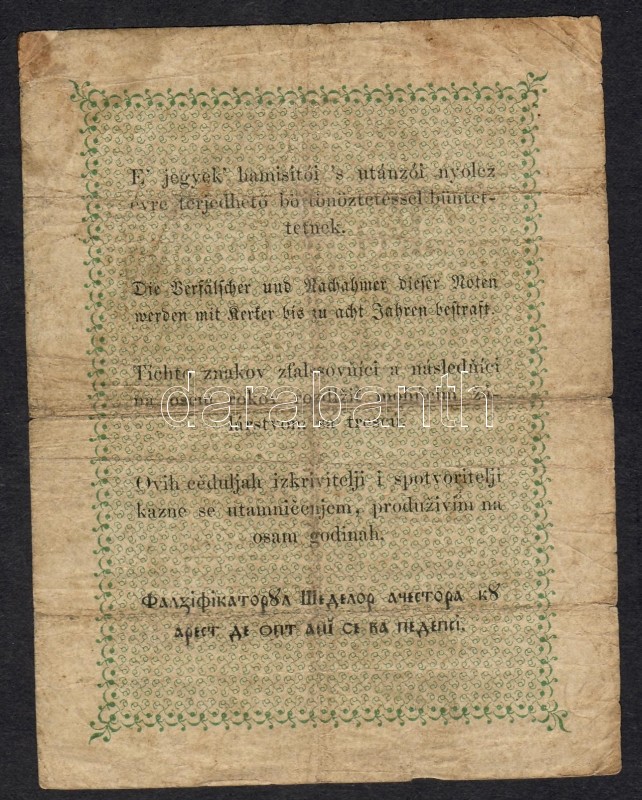 E' jegyek' hamisítói 's utánzói nyolcz
évre terjedhető börtönöztetéssel büntet-
tetnek.
Die Verfälscher und Nachahmer dieser Noten
werden mit Kerker bis zu acht Jahren bestraft.
Tíchto znakov zfalšovňíci a násleďňíci
na osem
trescú.
Ovih cěduljah izkrivitelji i spotvoritelji
kazne se utamničenjem, produživim na
osam godinah.
Фалꙁіфікаторꙋл Шеделор ачестора кꙋ
арест де опт анї се ва педепсі.
darabanth